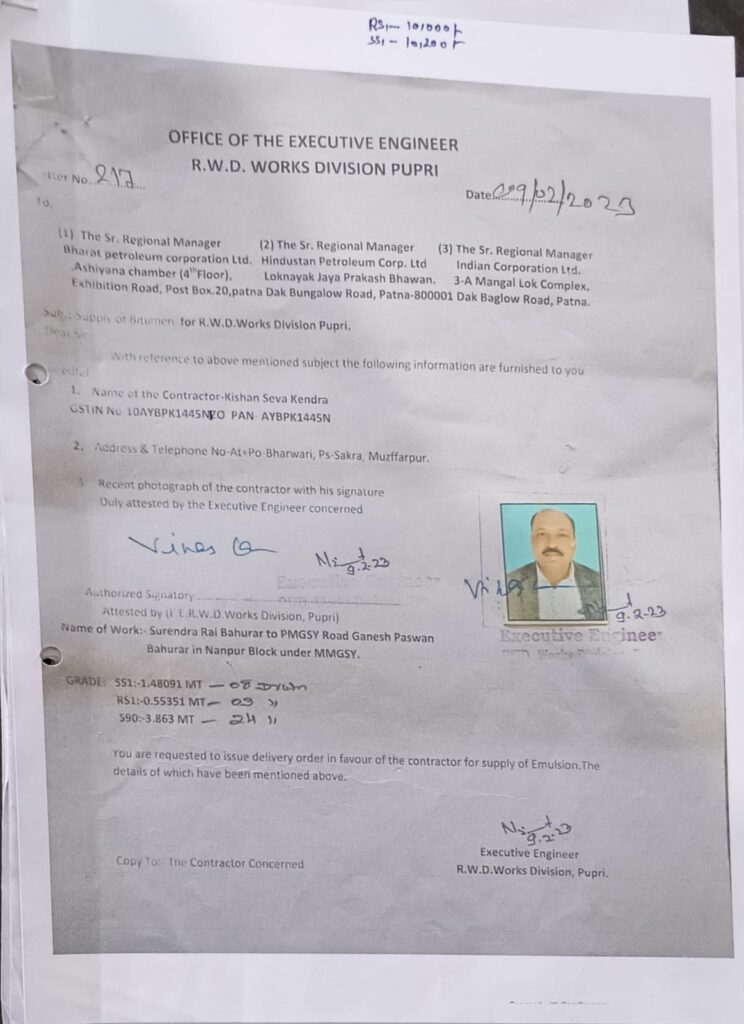 RS1- 10,000/-
SS1 - 10,200/-
OFFICE OF THE EXECUTIVE ENGINEER
R.W.D. WORKS DIVISION PUPRI
No...217....
Date..09/02/2023
To,
(1) The Sr. Regional Manager (2) The Sr. Regional Manager (3) The Sr. Regional Manager
Bharat petroleum corporation Ltd. Hindustan Petroleum Corp. Ltd Indian Corporation Ltd.
Ashiyana chamber (4th Floor), Loknayak Jaya Prakash Bhawan. 3-A Mangal Lok Complex,
Exhibition Road, Post Box.20,patna Dak Bungalow Road, Patna-800001 Dak Baglow Road, Patna.
Sub:-Supply of Bitumen for R.W.D.Works Division Pupri.
Dear Sir
With reference to above mentioned subject the following information are furnished to you
1. Name of the Contractor-Kishan Seva Kendra
GSTIN No 10AYBPK1445N PAN- AYBPK1445N
2. Address & Telephone No-At+Po Bharwari, Ps-Sakra, Muzffarpur.
3 Recent photograph of the contractor with his signature
Duly attested by the Executive Engineer concerned
9.2.23
Executive Engineer
Authorized Signatory
9.2.23
Attested by (E.E.R.W.D.Works Division, Pupri)
Executive Engineer
Name of Work:- Surendra Rai Bahurar to PMGSY Road Ganesh Paswan
Bahurar in Nanpur Block under MMGSY.
GRADE: SS1:-1.48091 MT — 08 Drum
RS1:-0.55351 MT — 03 "
S90:-3.863 MT — 24 "
You are requested to issue delivery order in favour of the contractor for supply of Emulsion.The
details of which have been mentioned above.
9.2.23
Executive Engineer
Copy To: The Contractor Concerned
R.W.D.Works Division, Pupri.